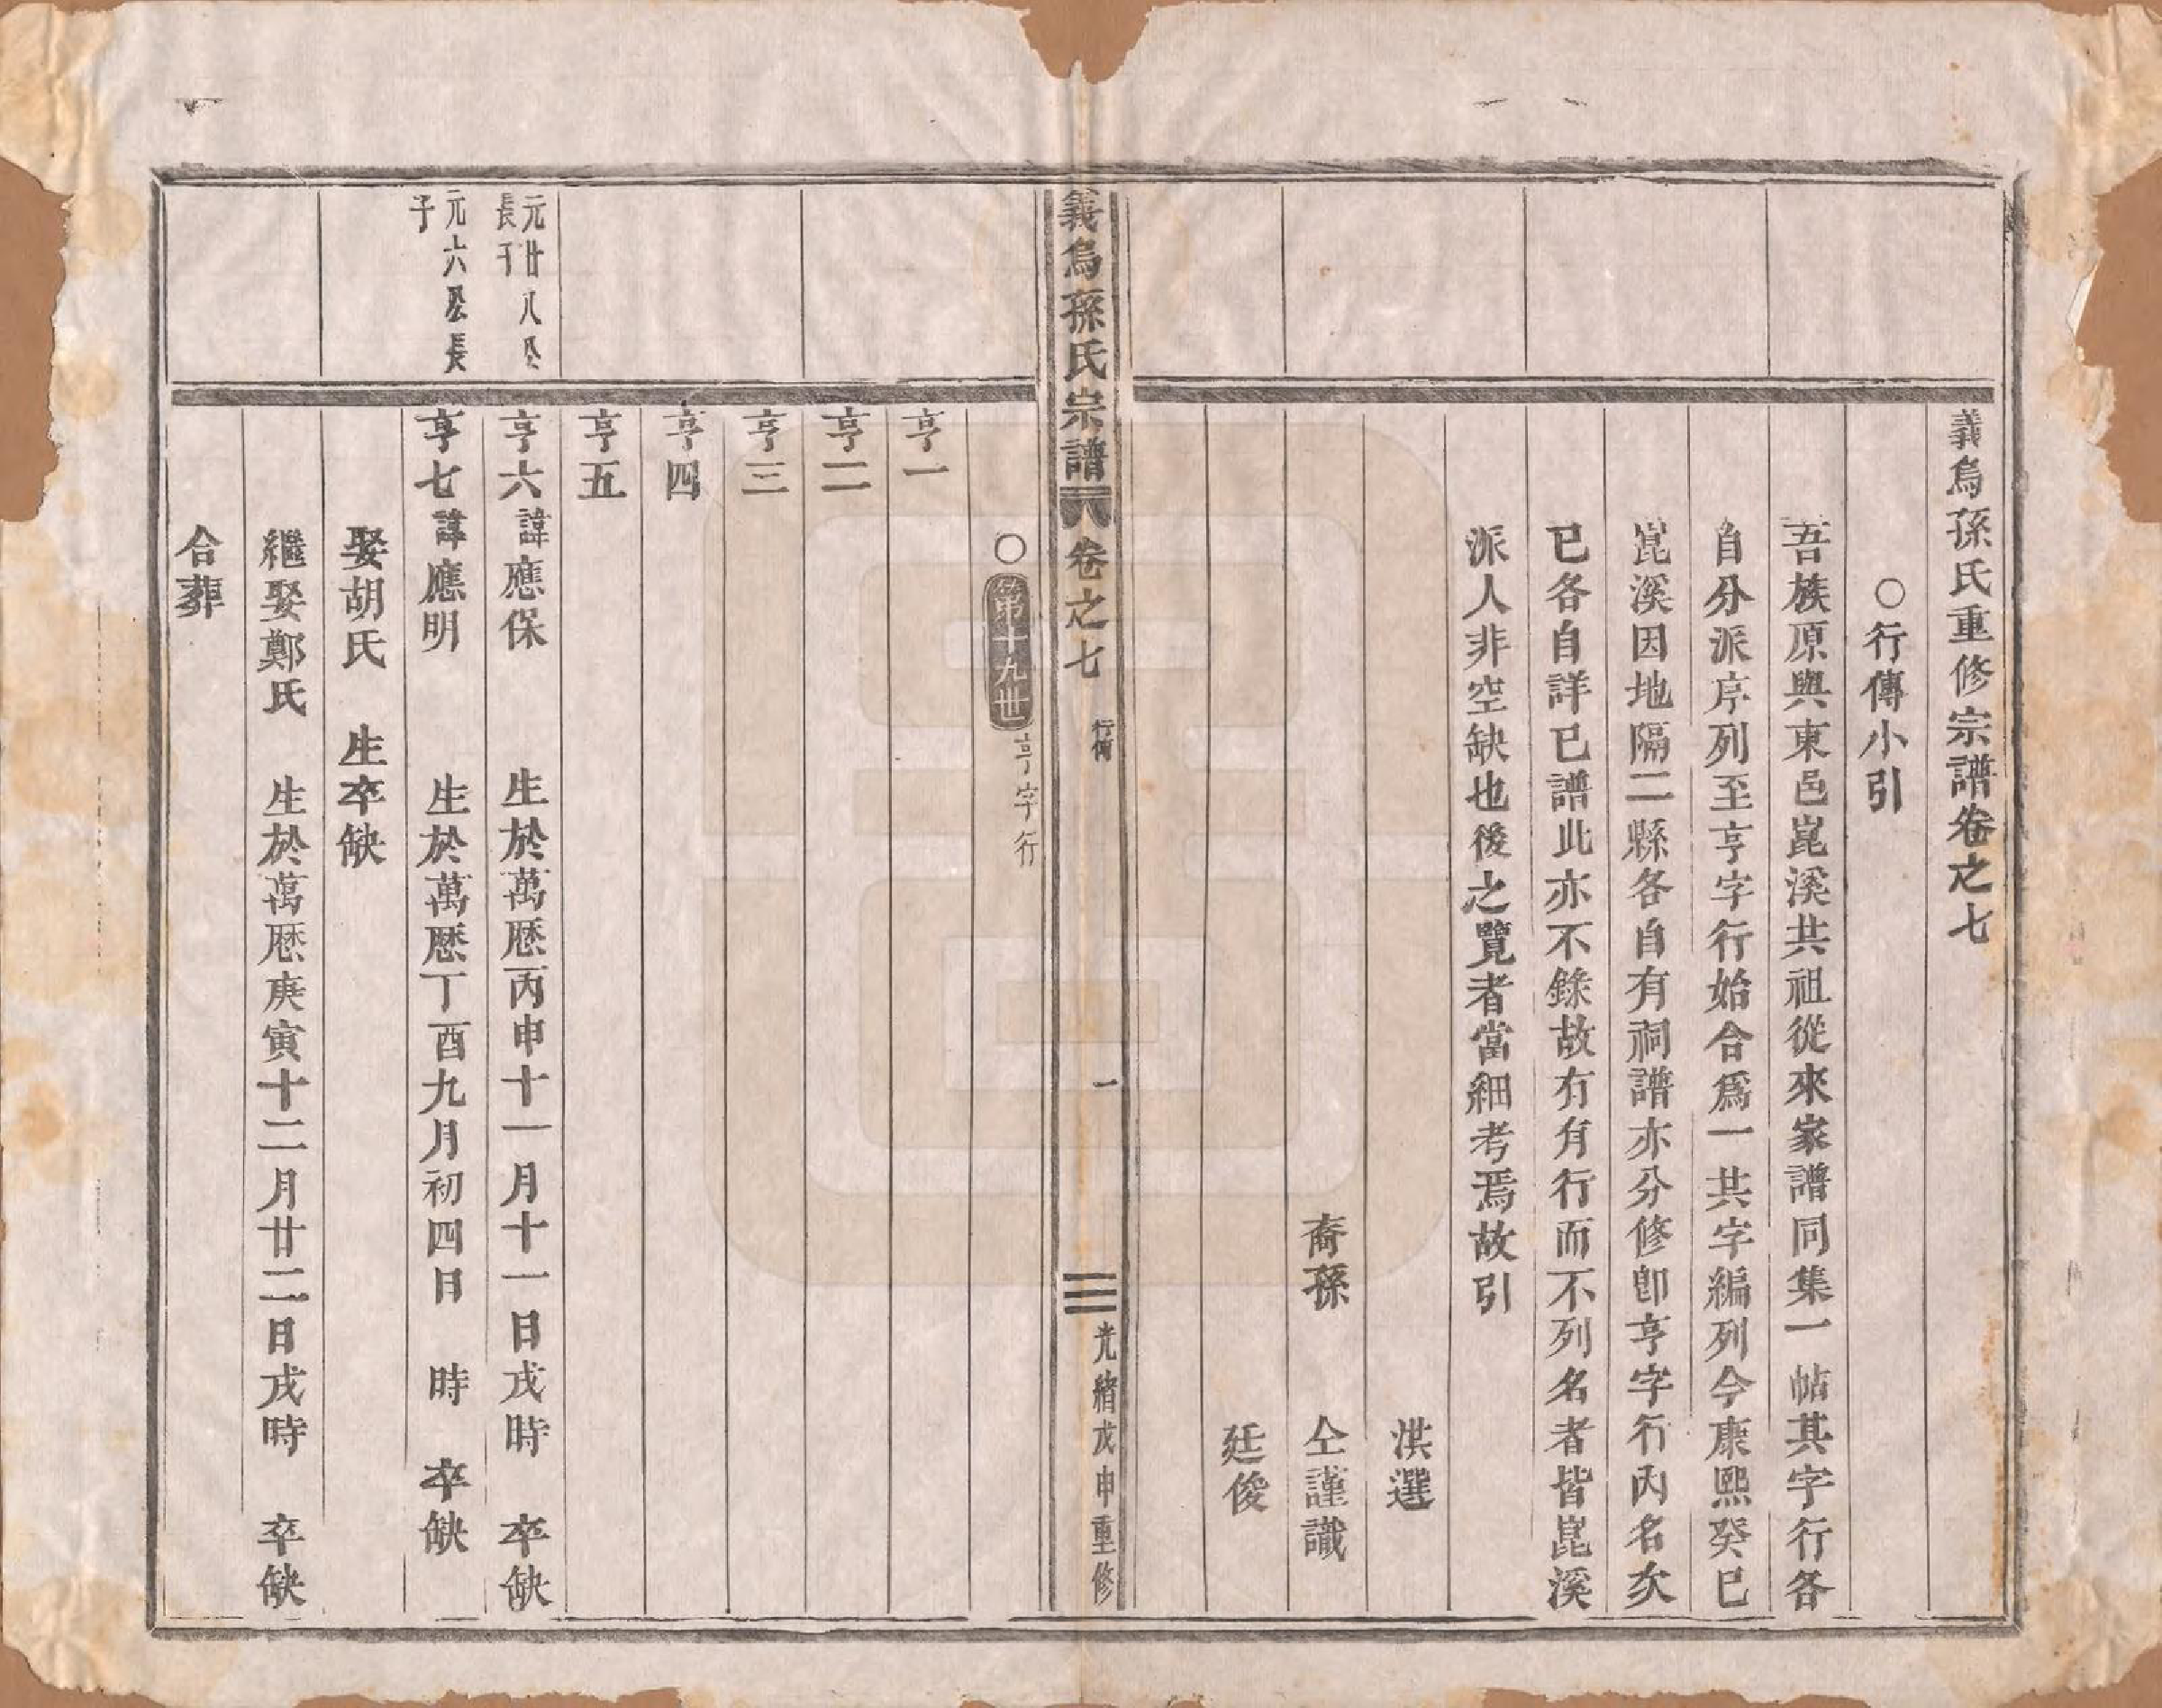 義烏孫氏重修宗譜卷之七
○行傳小引
吾族原與東邑崑溪共祖從來家譜同集一帖其字行各
自分派序列至亨字行始合爲一共字編列今康熙癸巳
崑溪因地隔二縣各自有祠譜亦分修卽亨字行內名次
已各自詳已譜此亦不錄故有有行而不列名者皆崑溪
派人非空缺也後之覽者當細考焉故引
淇選
裔孫 仝謹識
廷俊
義烏孫氏宗譜 卷之七 行傳 一 光緒戊申重修
○第十九世 亨字行
亨一
亨二
亨三
亨四
亨五
元廿八公長子
亨六諱應保 生於萬厯丙申十一月十一日戌時 卒缺
元六公長子
亨七諱應明 生於萬厯丁酉九月初四日 時 卒缺
娶胡氏 生卒缺
繼娶鄭氏 生於萬厯庚寅十二月廿二日戌時 卒缺
合葬